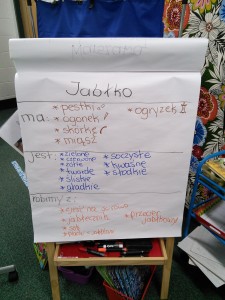 Jabłko
ma:
* pestki
* ogonek
* skórkę
* miąższ
* ogryzek
jest:
* zielone
* czerwone
* żółte
* twarde
* słodkie
* gładkie
* soczyste
* kwaśne
* słodkie
robimy z:
* jabłecznik
* sok
* przecier jabłkowy